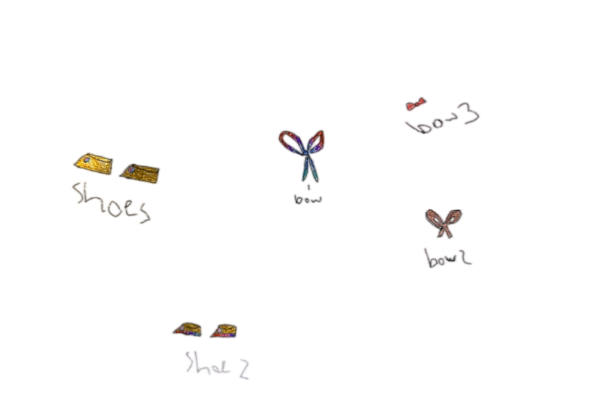 bow3
shoes
bow
bow2
shoe 2